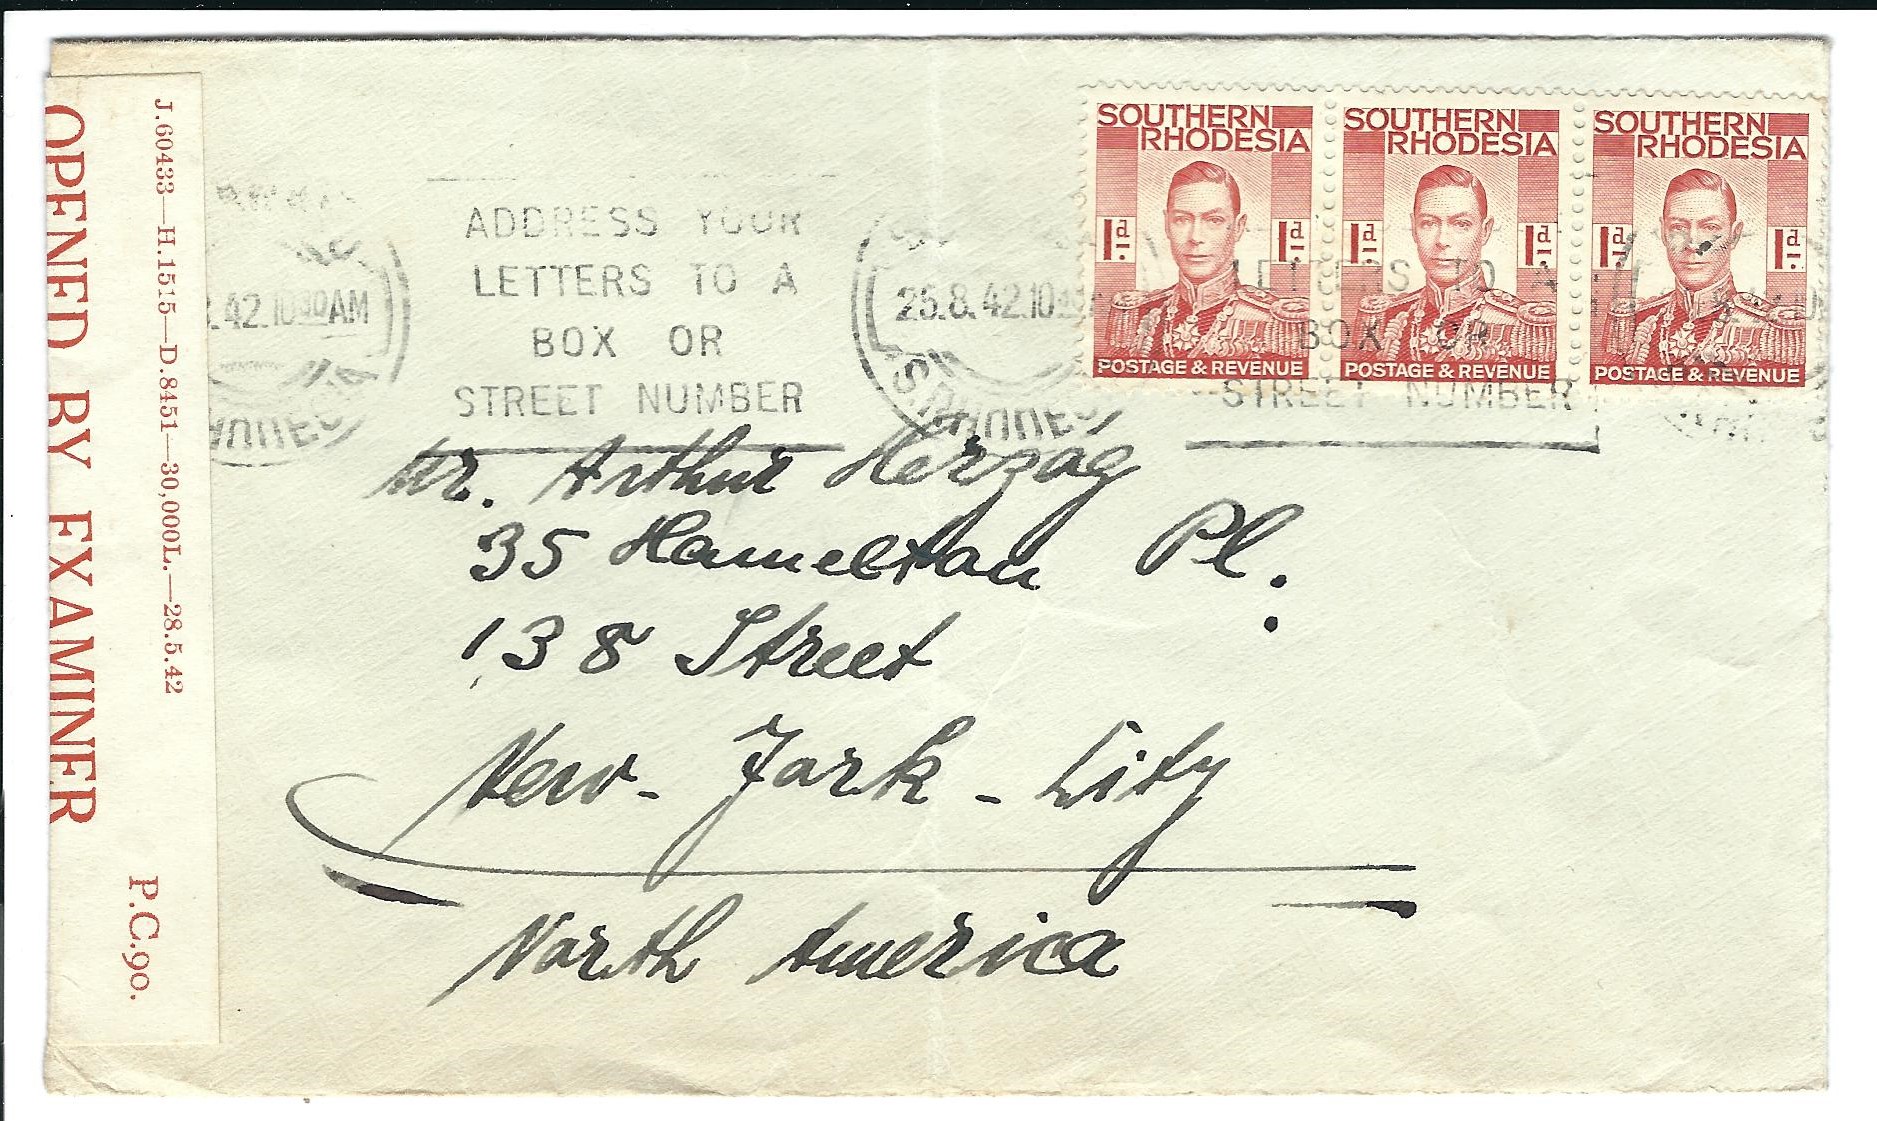 OPENED BY EXAMINER
J.60433—H.1515—D.8451—30,000L.—28.5.42
P.C.90.
.42.10 30AM
ADDRESS YOUR
LETTERS TO A
BOX OR
STREET NUMBER
25.8.42.10
LETTERS TO A
BOX OR
STREET NUMBER
SOUTHERN
RHODESIA
1d 1d
POSTAGE & REVENUE
SOUTHERN
RHODESIA
1d 1d
POSTAGE & REVENUE
SOUTHERN
RHODESIA
1d 1d
POSTAGE & REVENUE
Mr. Arthur Herzog
35 Hamelton Pl.
138 Street
New-York-City
North America